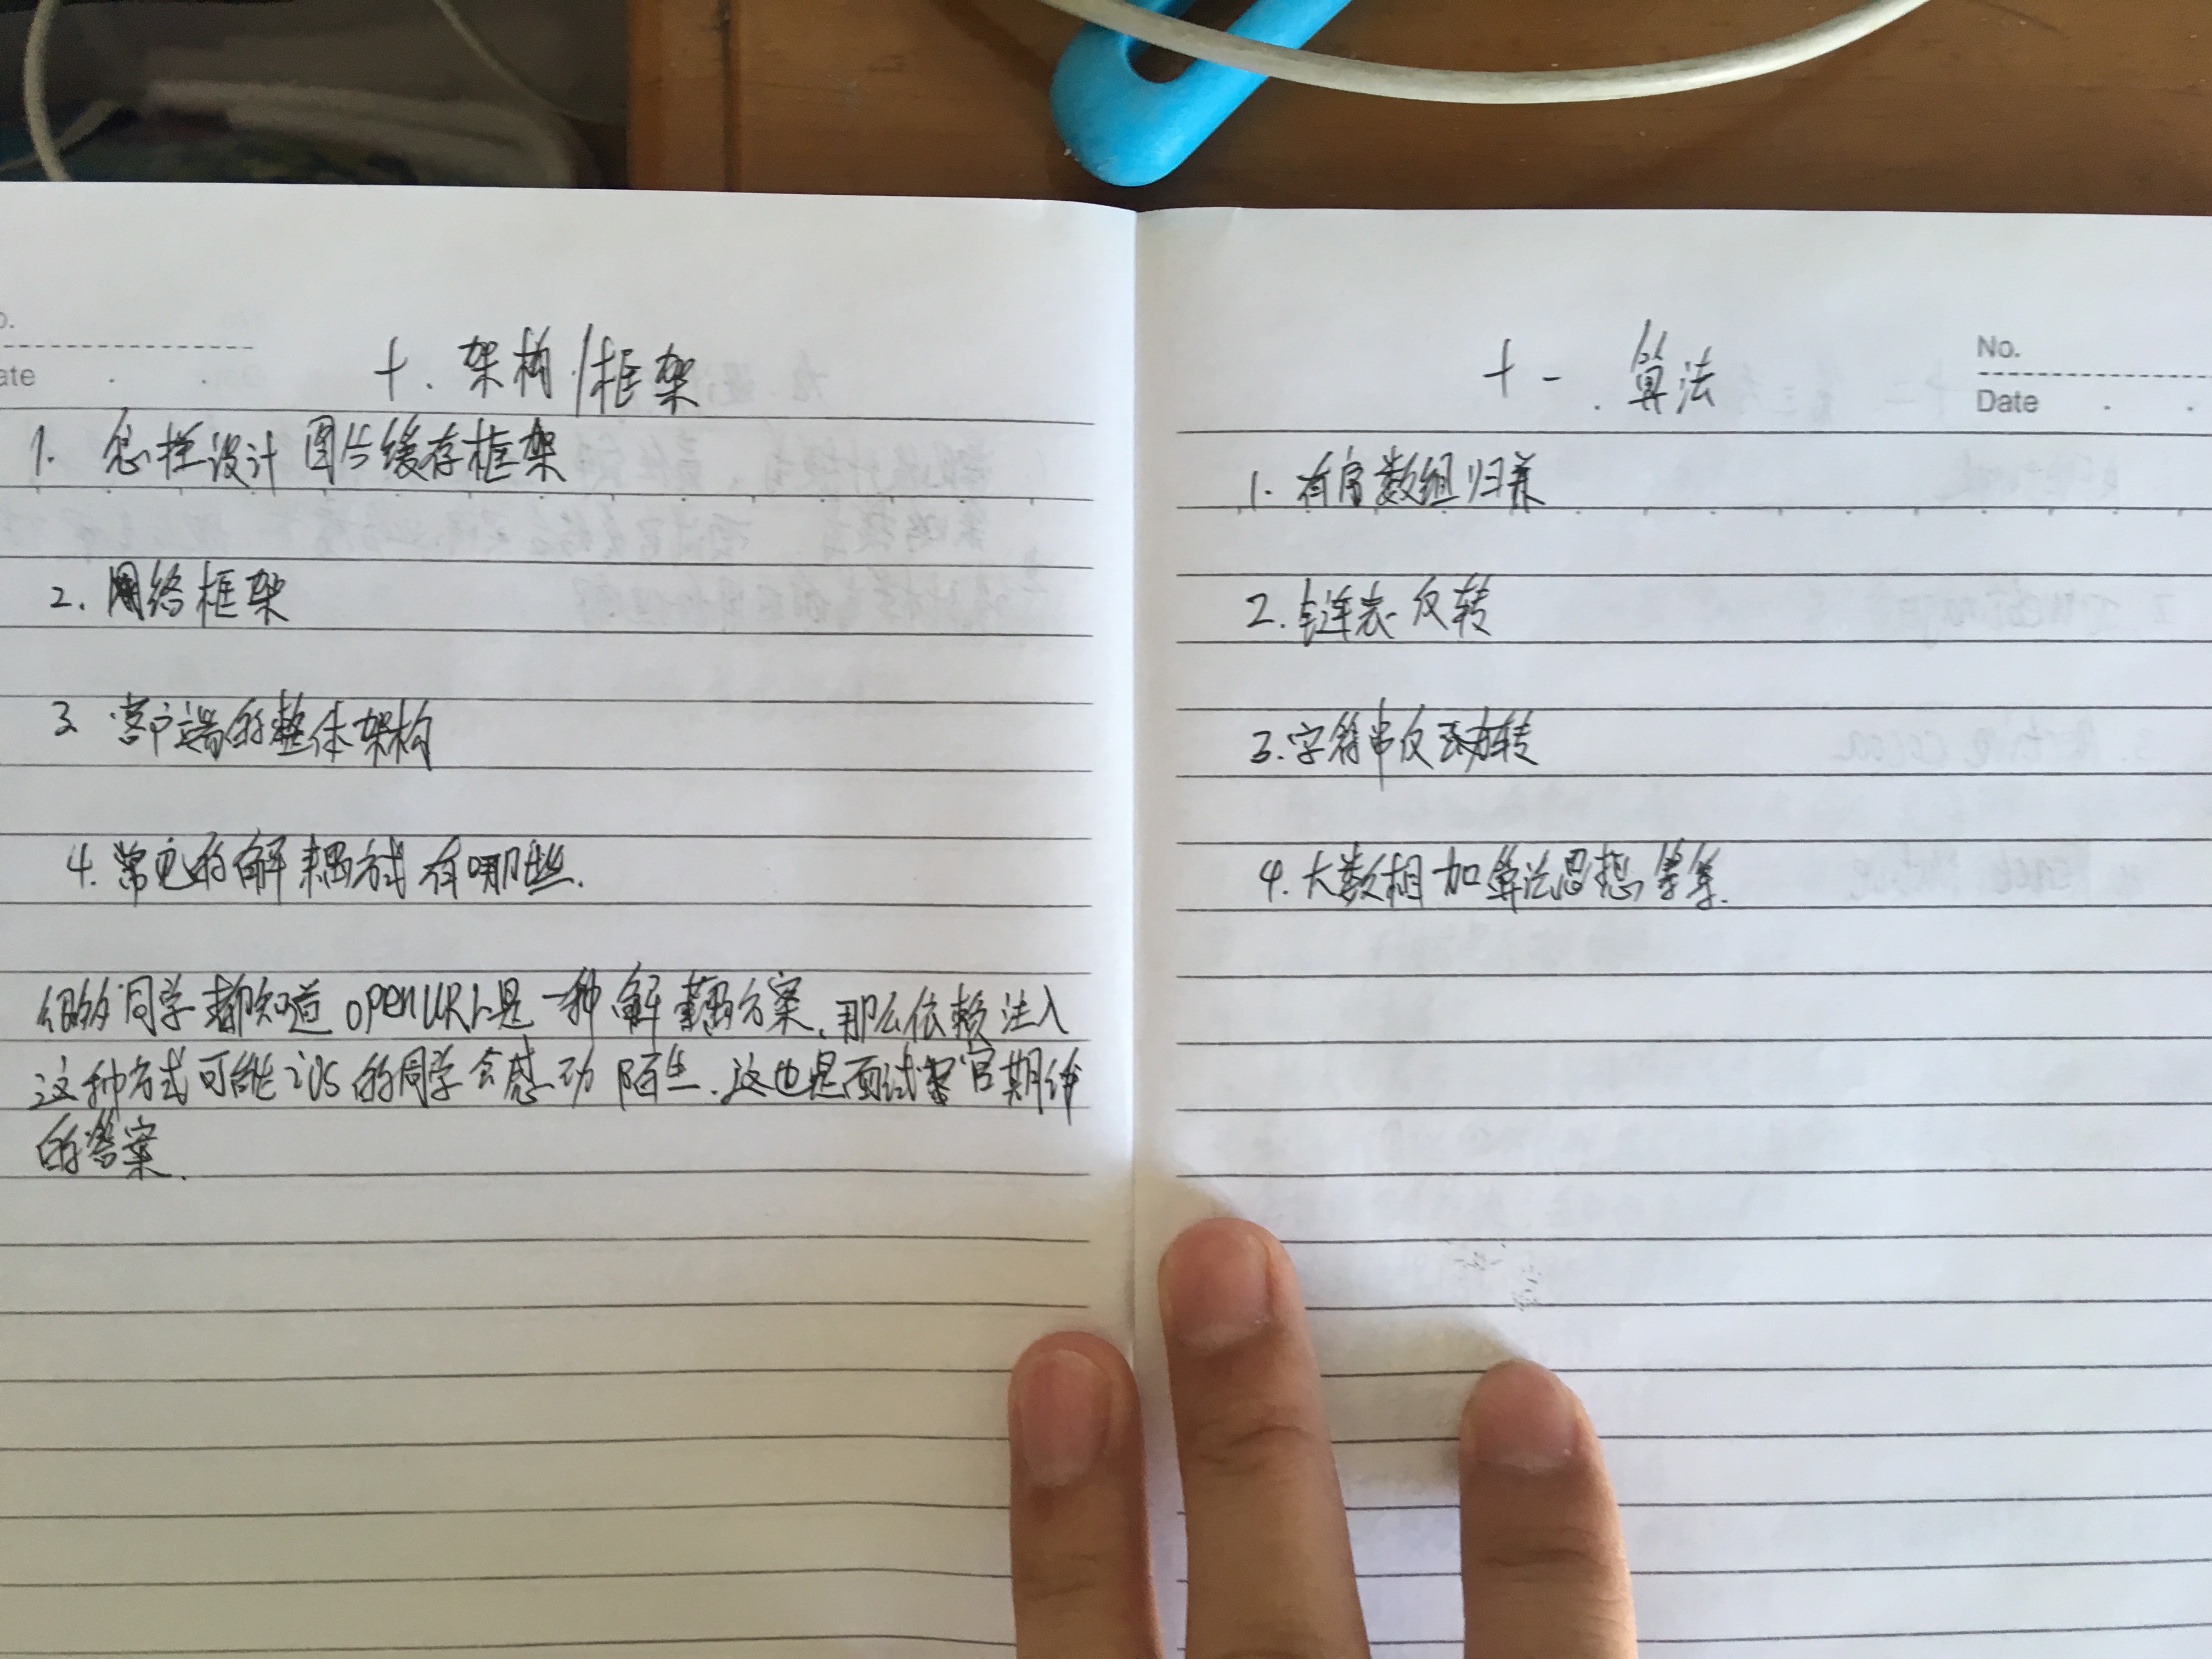 No.
Date
十. 架构/框架
1. 怎样设计图片缓存框架
2. 网络框架
3 客户端的整体架构
4. 常见的解耦方式有哪些.
同学都知道 openURL是一种解耦方案, 那么依赖注入
这种方式可能 的同学会感动陌生. 这也是面试官期待
的答案.
No.
Date
十一. 算法
1. 有序数组归并
2. 连表反转
3. 字符串反转
4. 大数相加算法思想等等.